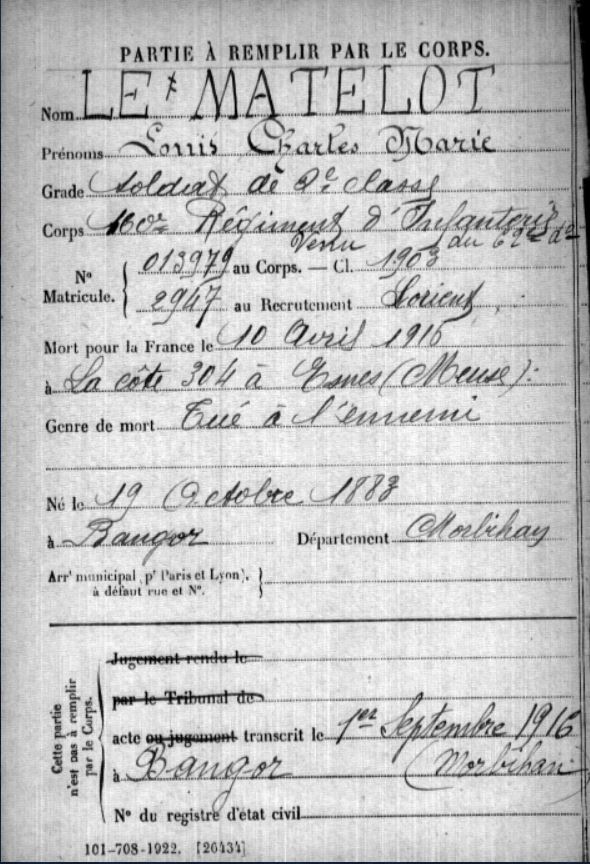 PARTIE À REMPLIR PAR LE CORPS.
Nom LE MATELOT
Prénoms Louis Charles Marie
Grade soldat de 2e classe
Corps 160e Régiment d'Infanterie
Venu du 62e do
No Matricule. 013979 au Corps. — Cl. 1903
2947 au Recrutement Lorient
Mort pour la France le 10 Avril 1916
à La côte 304 à Esnes (Meuse):
Genre de mort Tué à l'ennemi
Né le 19 Octobre 1883
à Bangor Département Morbihan
Arrt municipal (pr Paris et Lyon),
à défaut rue et No.
Jugement rendu le
par le Tribunal de
acte ou jugement transcrit le 1er Septembre 1916
à Bangor (Morbihan
No du registre d'état civil
Cette partie
n'est pas à remplir
par le Corps.
101-708-1922. [26434]